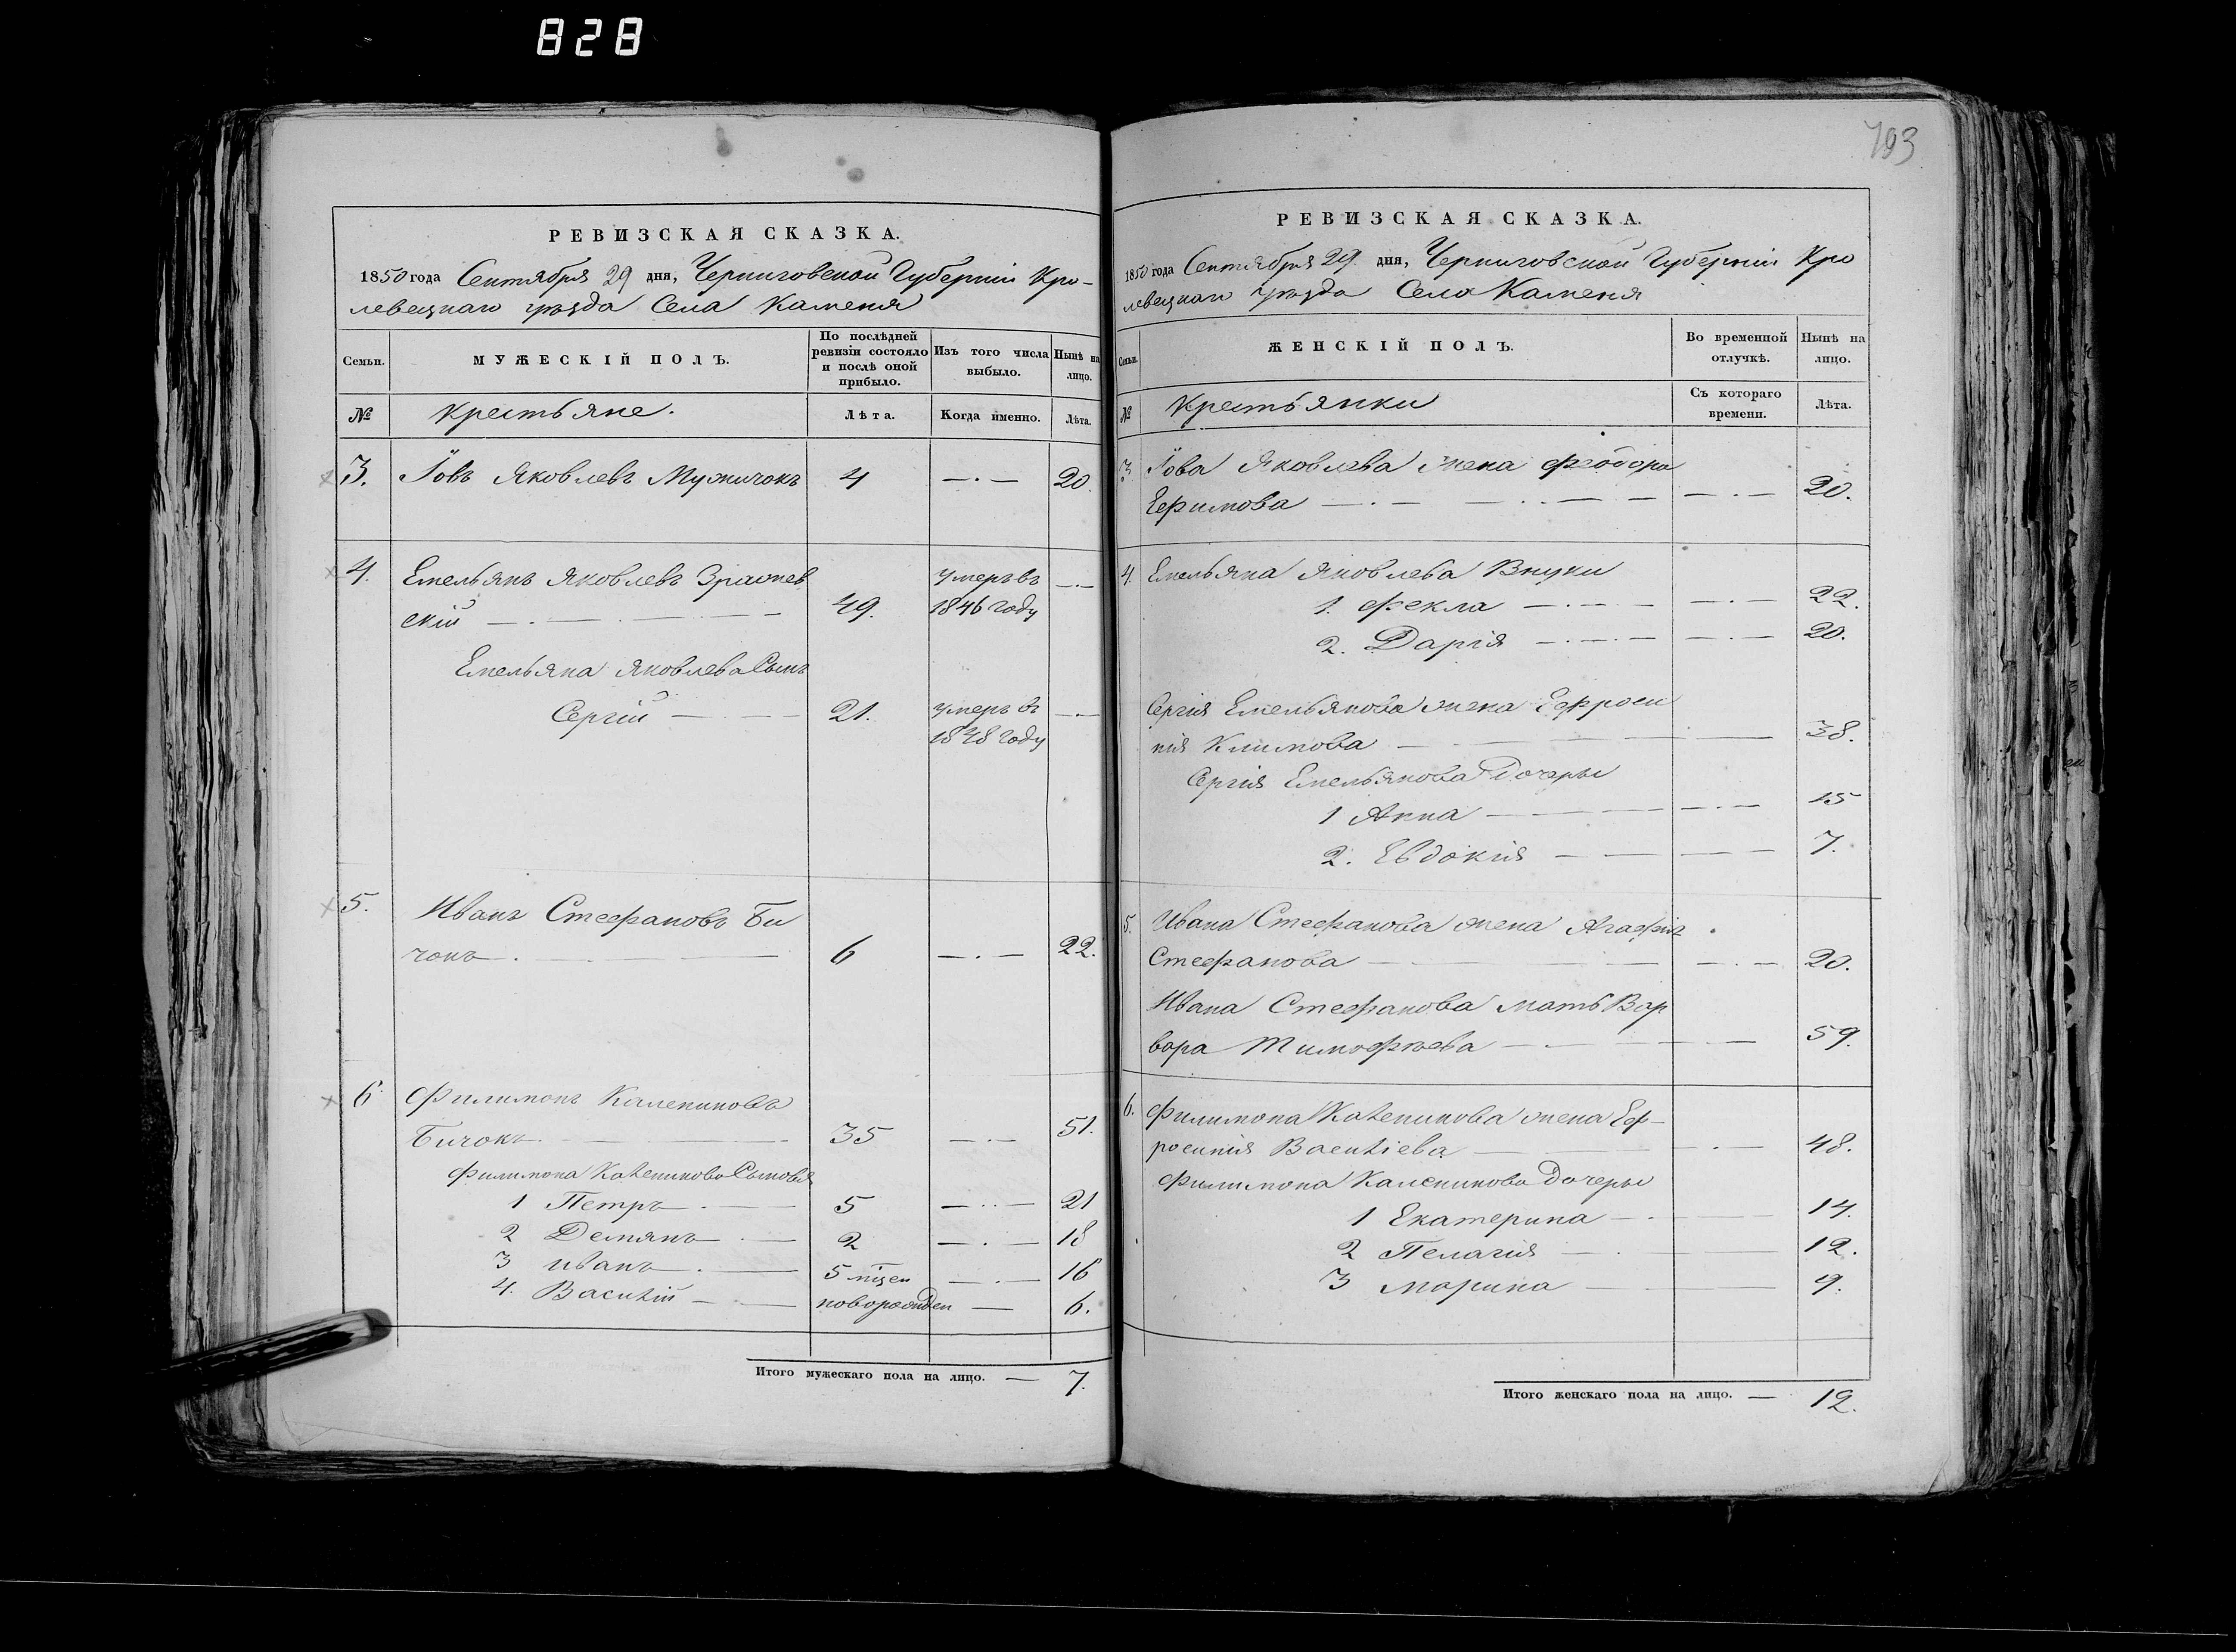 828
793
РЕВИЗСКАЯ СКАЗКА.
1850 года Сентября 29 дня, Черниговской Губерніи Кро-
левецкаго уѣзда Села Каменя
Семьи. МУЖЕСКІЙ ПОЛЪ. По послѣдней ревизіи состояло и послѣ оной прибыло. Изъ того числа выбыло. Нынѣ на лицо.
№ Крестьяне. Лѣта. Когда именно. Лѣта.
3. Іовъ Яковлевъ Мужичокъ 4 — . — 20.
4. Емельянъ Яковлевъ
скій 49. умеръ въ 1846 году — . —
Емельяна Яковлева Сынъ
Сергій 21. умеръ въ 1848 году — . —
5. Иванъ Стефановъ Би
чокъ 6 — . — 22.
6 Филимонъ Калениковъ
Бичокъ 35 — . — 51.
Филимона Каленикова Сыновья
1 Петръ 5 — . — 21
2 Демянъ 2 — . — 18
3 Иванъ 5 мцеи — . — 16
4. Василій новорожден — 6.
Итого мужескаго пола на лицо. — 7.
РЕВИЗСКАЯ СКАЗКА.
1850 года Сентября 29 дня, Черниговской Губерніи Кро
левецкаго уѣзда Села Каменя
Семьи. ЖЕНСКІЙ ПОЛЪ. Во временной отлучкѣ. Нынѣ на лицо.
№ Крестьянки Съ котораго времени. Лѣта.
3. Іова Яковлева жена Феодора
Ефимова — . — 20.
4. Емельяна Яковлева Внуки
1. Фекла — . — 22.
2. Дарія — . — 20.
Сергія Емельянова жена Ефроси
нія Климова — 38.
Сергія Емельянова Дочеры
1 Анна — . — 15
2. Евдокія — 7.
5. Ивана Стефанова жена Агафія
Стефанова — . — 20.
Ивана Стефанова мать Вар
вара Тимофѣева — 59.
6. Филимона Каленикова жена Еф-
росинія Василіева — . — 48.
Филимона Каленикова Дочеры
1 Екатерина — 14.
2 Пелагія — 12.
3 Марина — 9.
Итого женскаго пола на лицо. — 12.